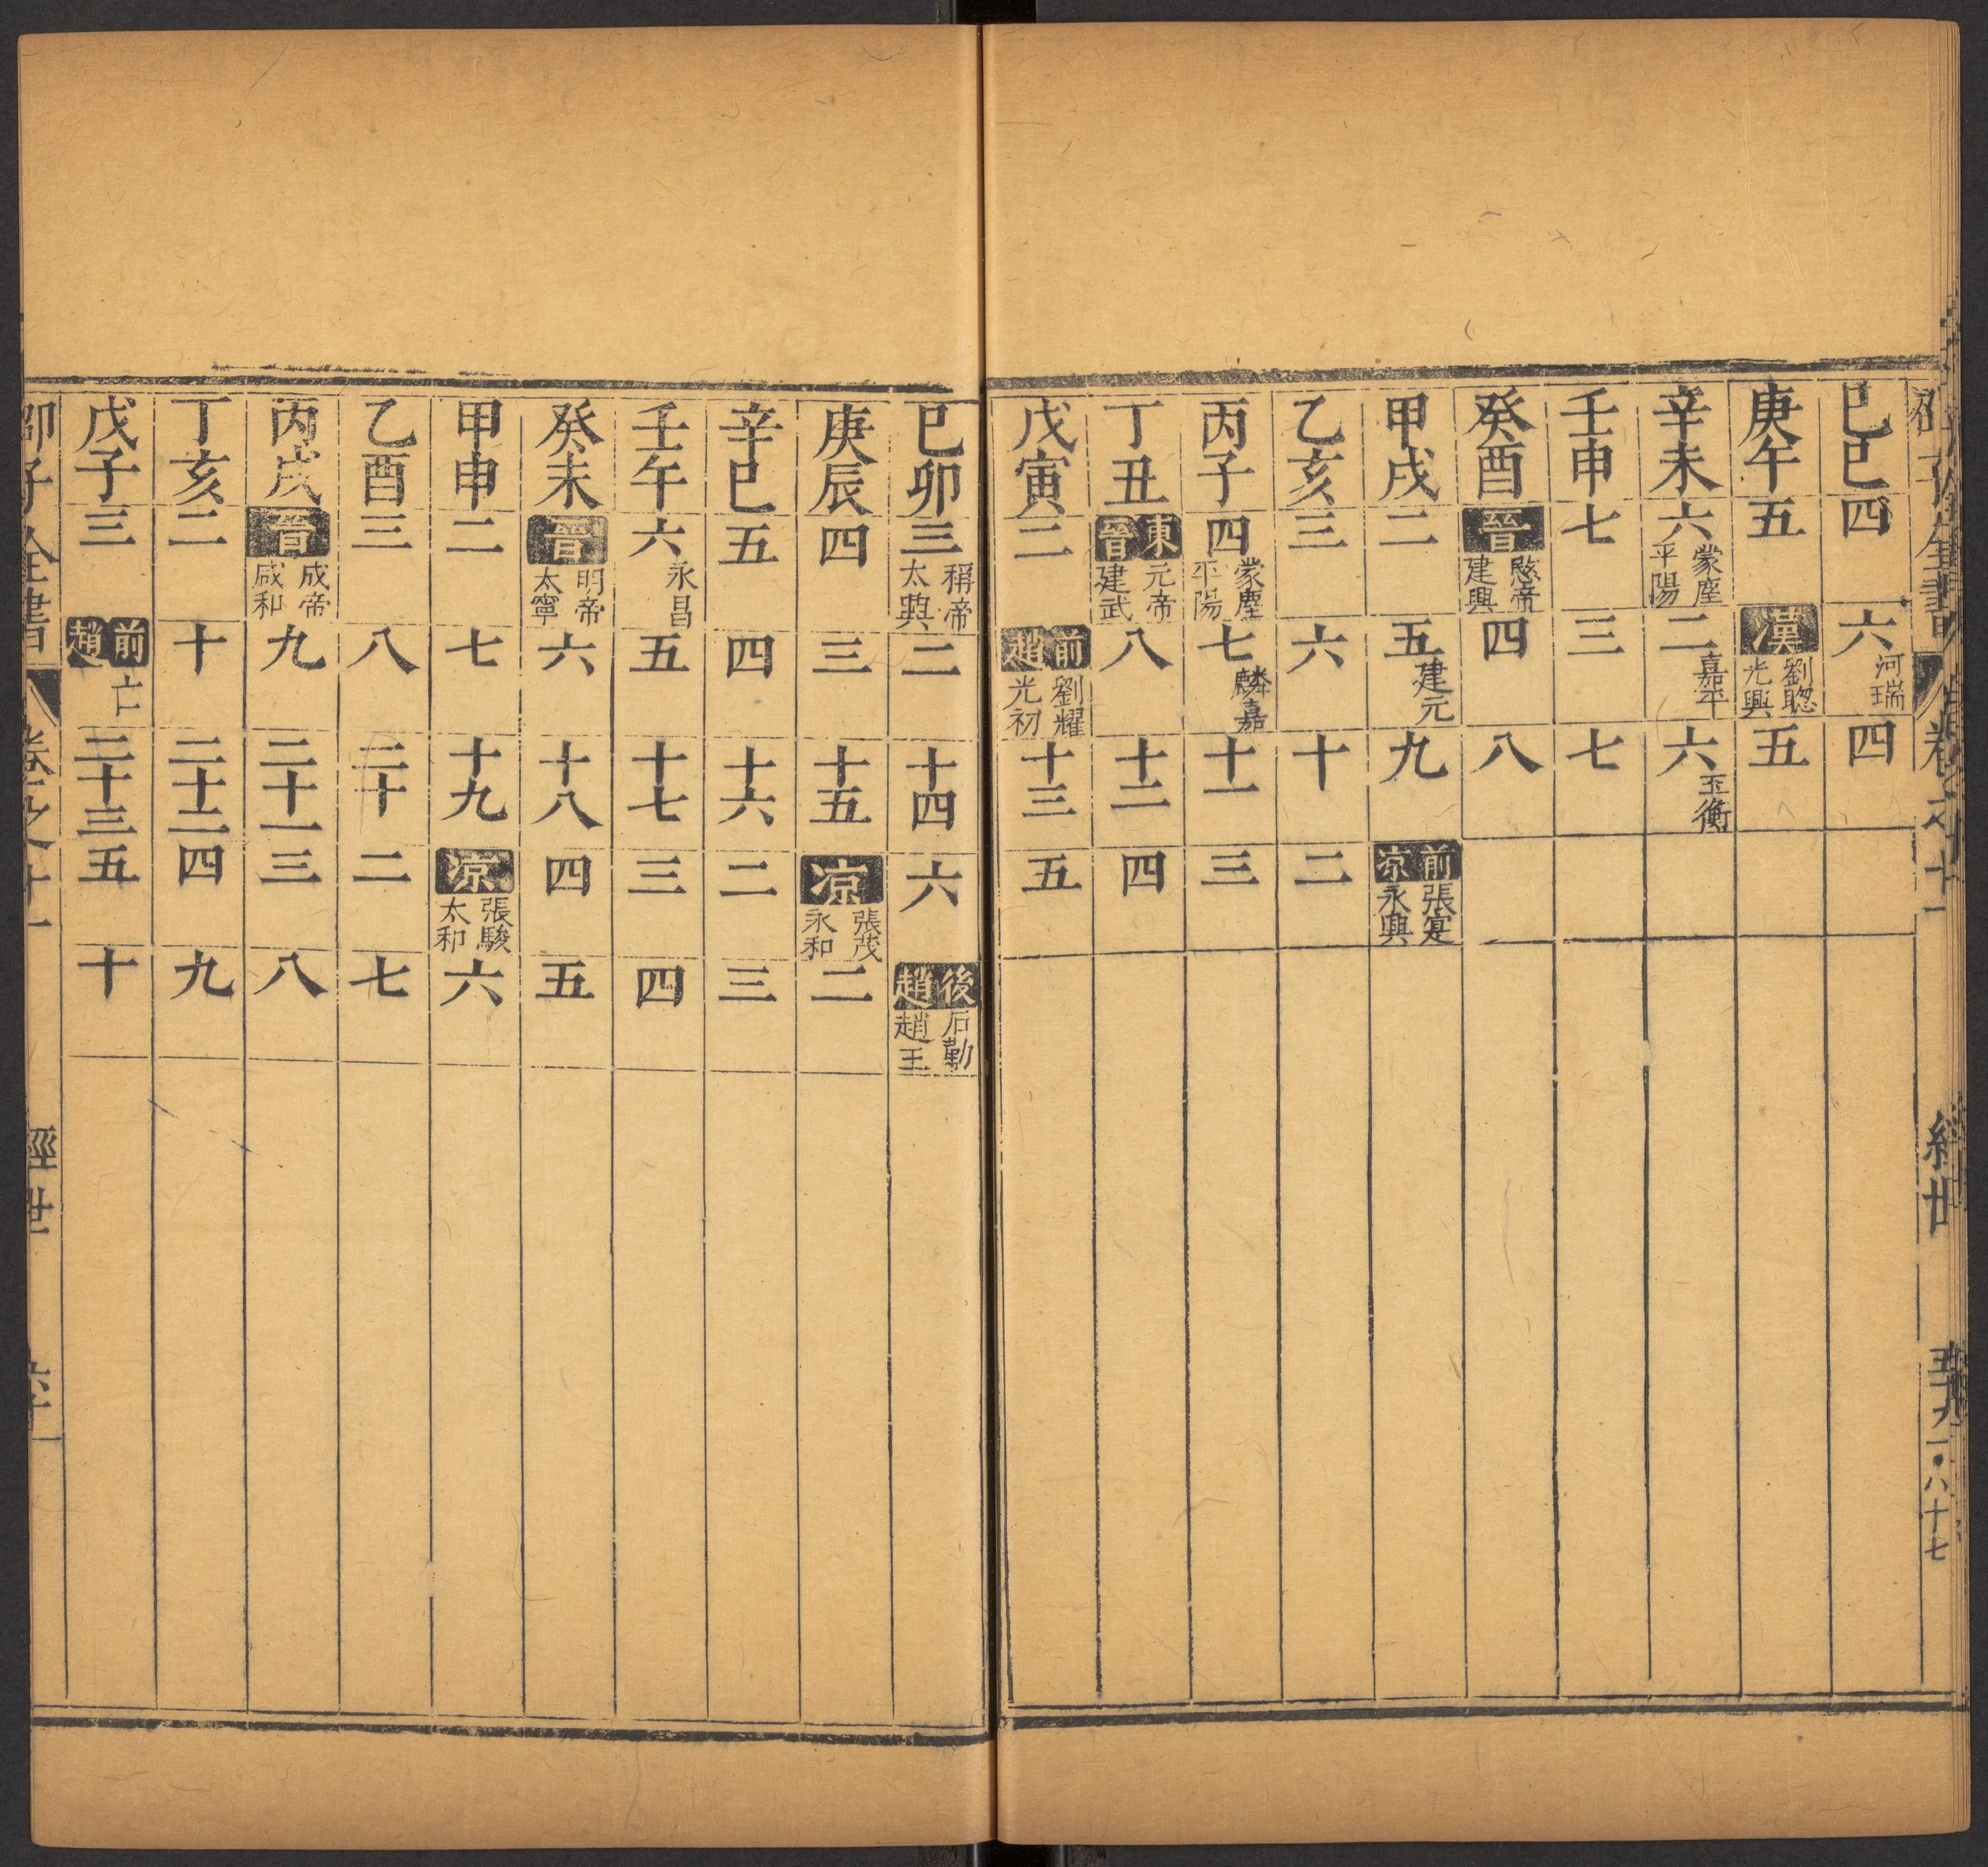 巳巳四六河瑞四
庚午五漢劉聦光興五
辛未六蒙塵平陽二嘉平六玉衡
壬申七三七
癸酉晉愍帝建興四八
甲戌二五建元九前凉張寔永興
乙亥三六十二
丙子四蒙塵平陽七麟嘉十一三
丁丑東晉元帝建武八十二四
戊寅二前趙劉耀光初十三五
巳卯三稱帝太興二十四六後趙石勒趙王
庚辰四三十五凉張茂永和二
辛巳五四十六二三
壬午六永昌五十七三四
癸未晉明帝太寧六十八四五
甲申二七十九凉張駿太和六
乙酉三八二十二七
丙戌晉成帝咸和九二十一三八
丁亥二十二十二四九
戊子三前趙亡二十三五十
邵子全書 卷之十一 經世 六十一